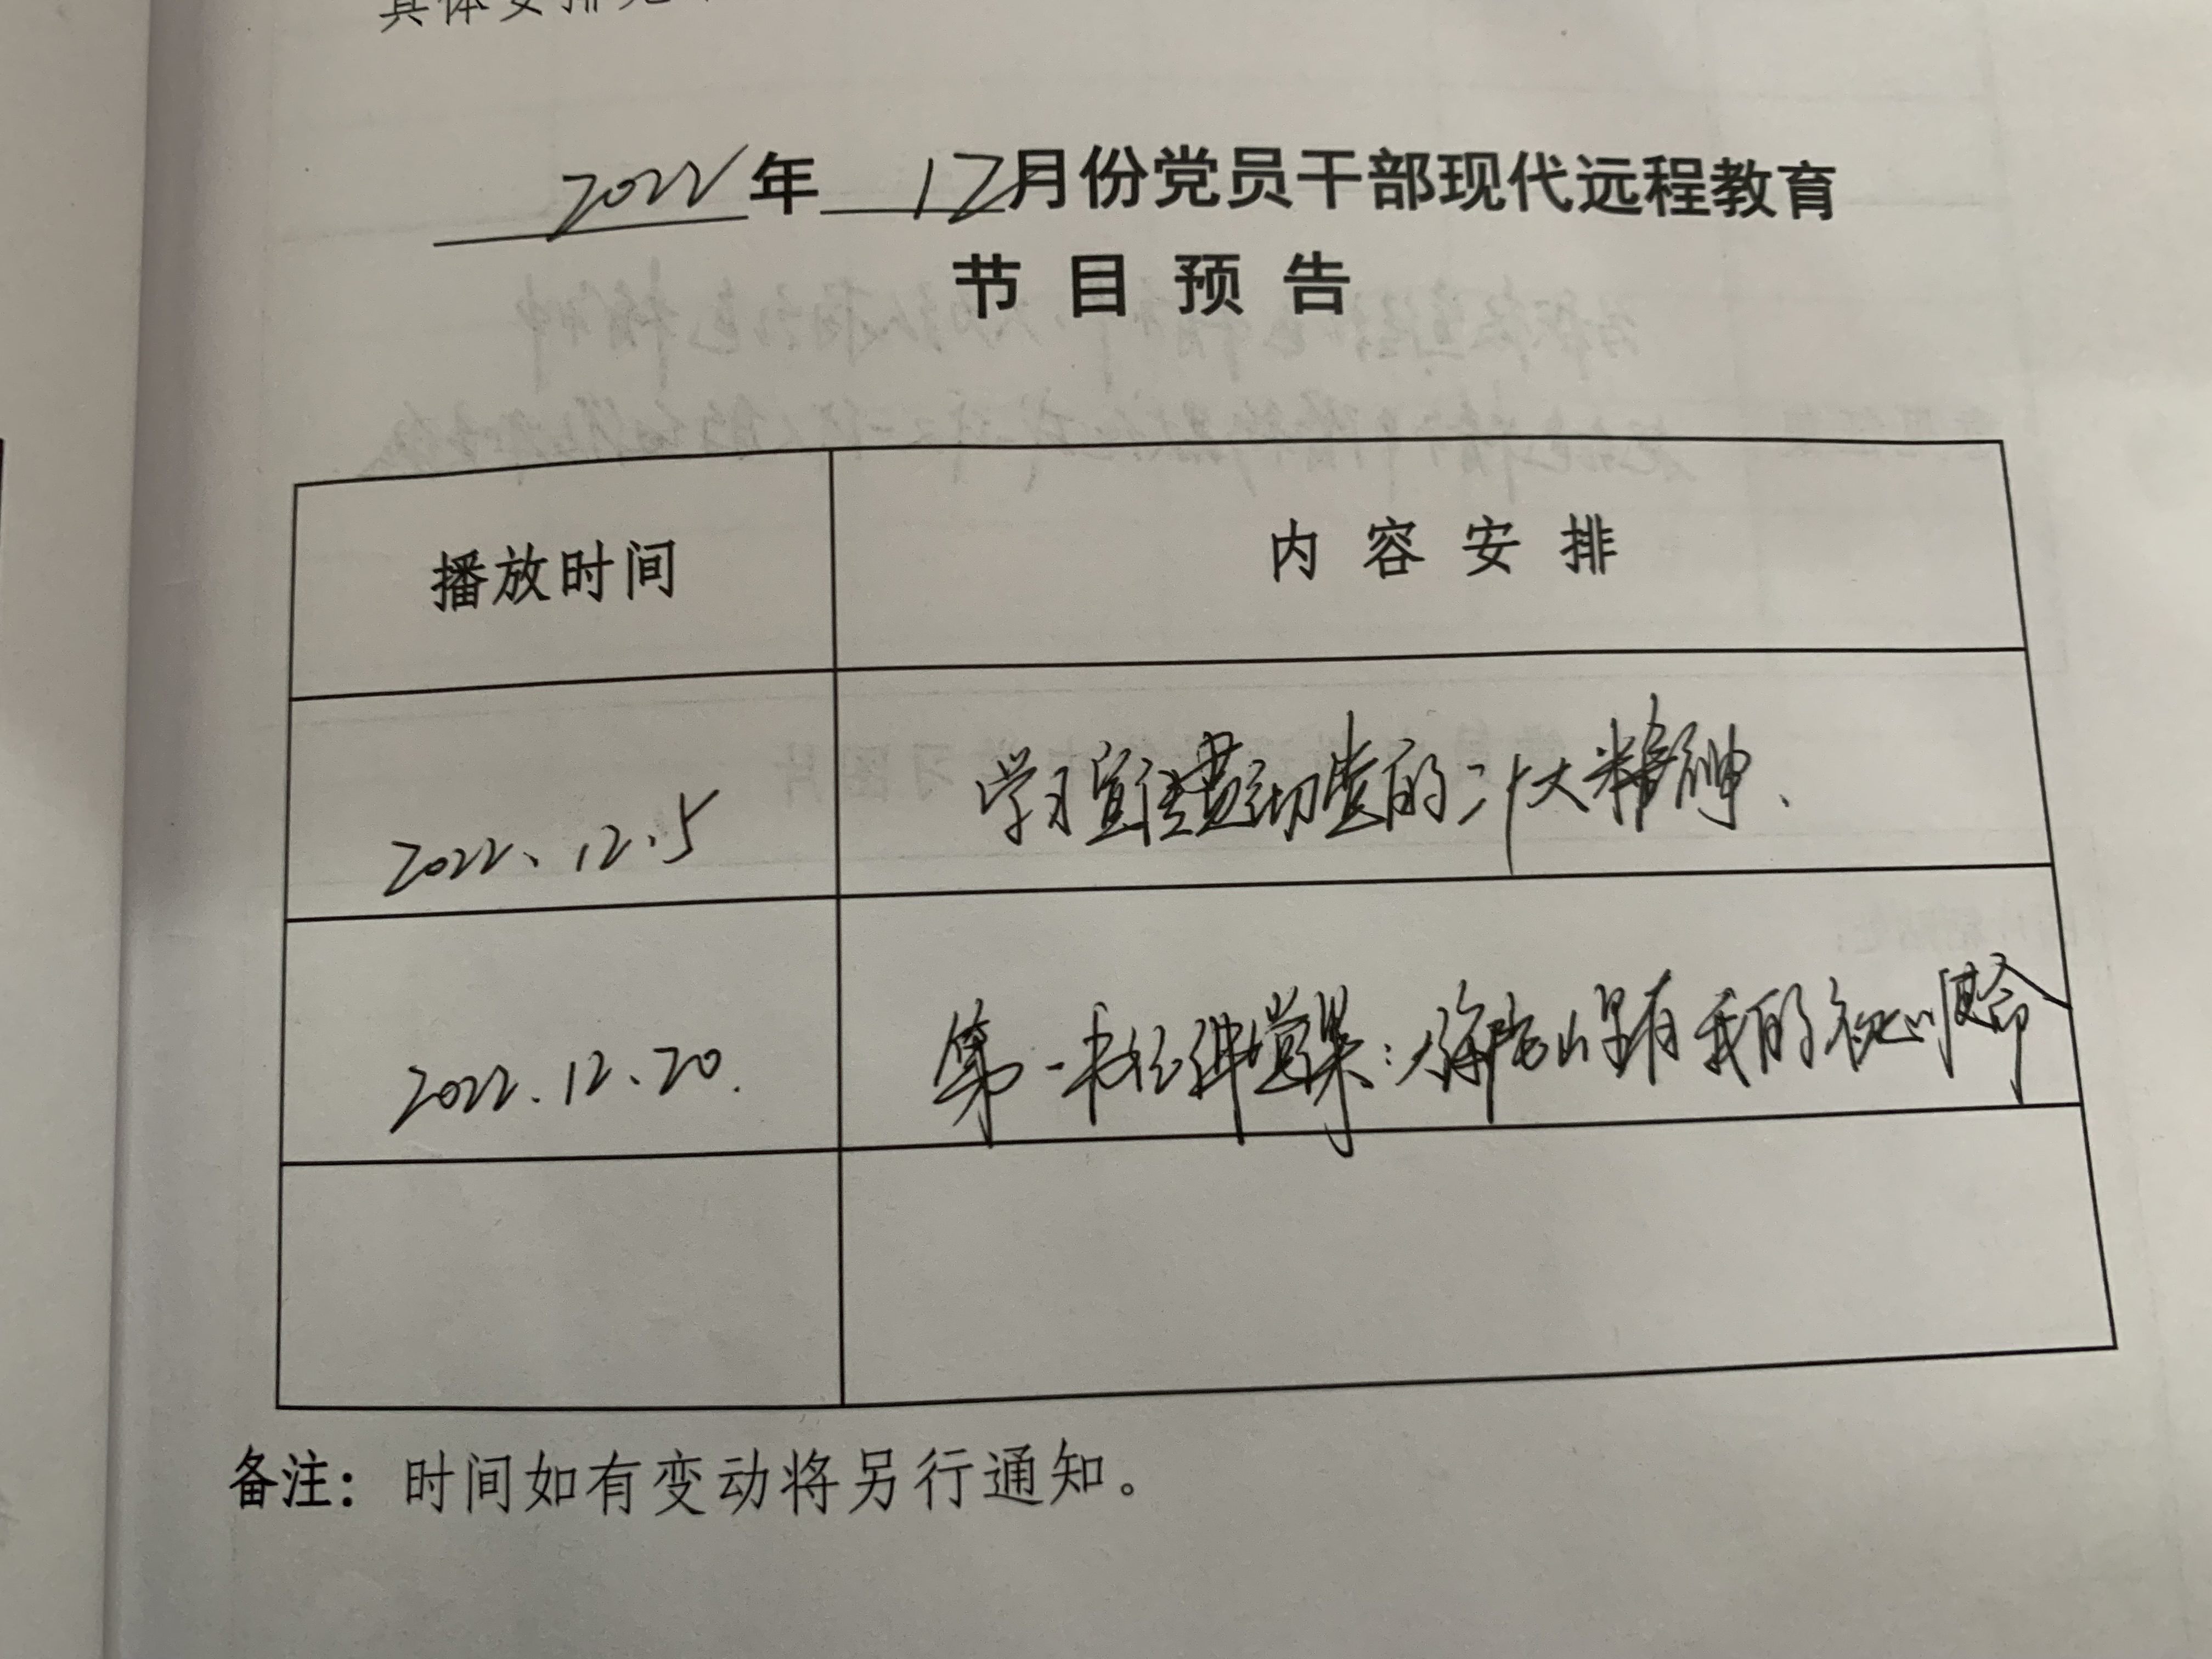 具体安排见
2022年 12月份党员干部现代远程教育
节目预告
播放时间 内容安排
2022、12.5 学习宣传贯彻党的二十大精神、
2022.12、20. 第一书记讲党课：大海陀山里有我的初心使命
备注：时间如有变动将另行通知。